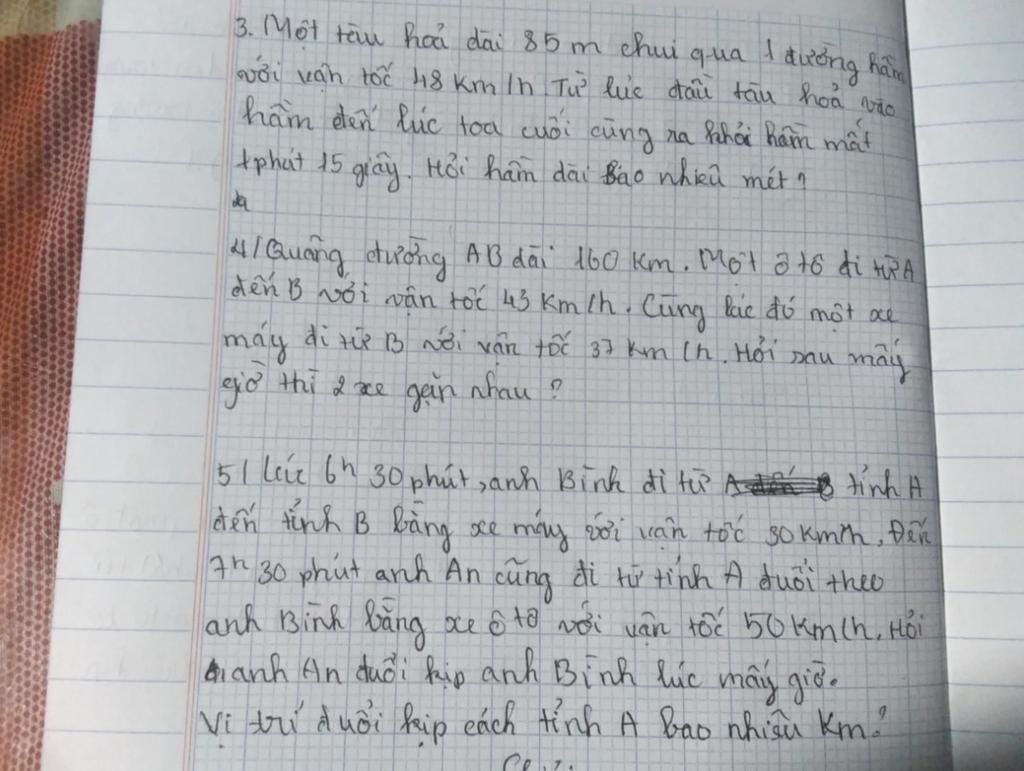 3. Một tàu hoả dài 85m chui qua 1 đường hầm
với vận tốc 48 Km/h Từ lúc đầu tàu hoả vào
hầm đến lúc toa cuối cùng ra khỏi hầm mất
1phút 15 giây. Hỏi hầm dài bao nhiêu mét?
4/ Quãng đường AB dài 160 Km. Một ô tô đi từ A
đến B với vận tốc 43 Km/h. Cùng lúc đó một xe
máy đi từ B với vận tốc 37 Km/h. Hỏi sau mấy
giờ thì 2 xe gặp nhau?
5/ Lúc 6h 30 phút, anh Bình đi từ tỉnh A
đến tỉnh B bằng xe máy với vận tốc 30 Km/h. Đến
7h 30 phút anh An cũng đi từ tỉnh A đuổi theo
anh Bình bằng xe ô tô với vận tốc 50 Km/h. Hỏi
anh An đuổi kịp anh Bình lúc mấy giờ.
Vị trí đuổi kịp cách tỉnh A bao nhiêu Km?